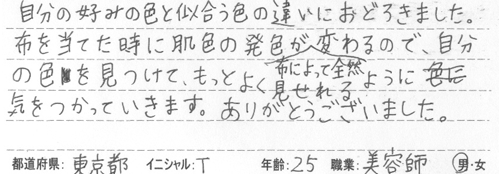 自分の好みの色と似合う色の違いにおどろきました。
布を当てた時に肌色の発色が布によって全然変わるので、自分
の色を見つけて、もっとよく見せれるように
気をつかっていきます。ありがとうございました。
都道府県: 東京都 イニシャル: T 年齢: 25 職業: 美容師 男・女